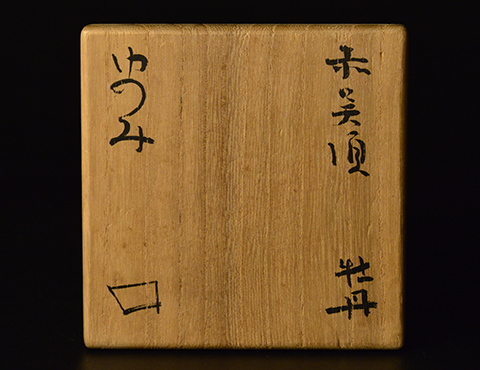 赤呉須 牡丹
ゆのみ